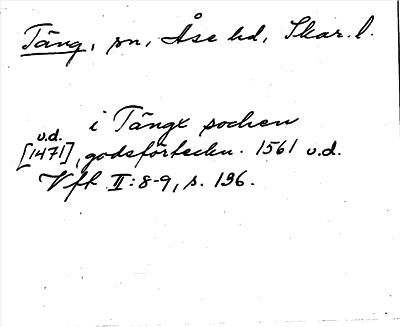 Täng, sn, Åse hd, Skar. l.
i Tängx socken
u.d.
[1471], godsförteckn. 1561 u.d.
Vft II:8-9, s. 136.